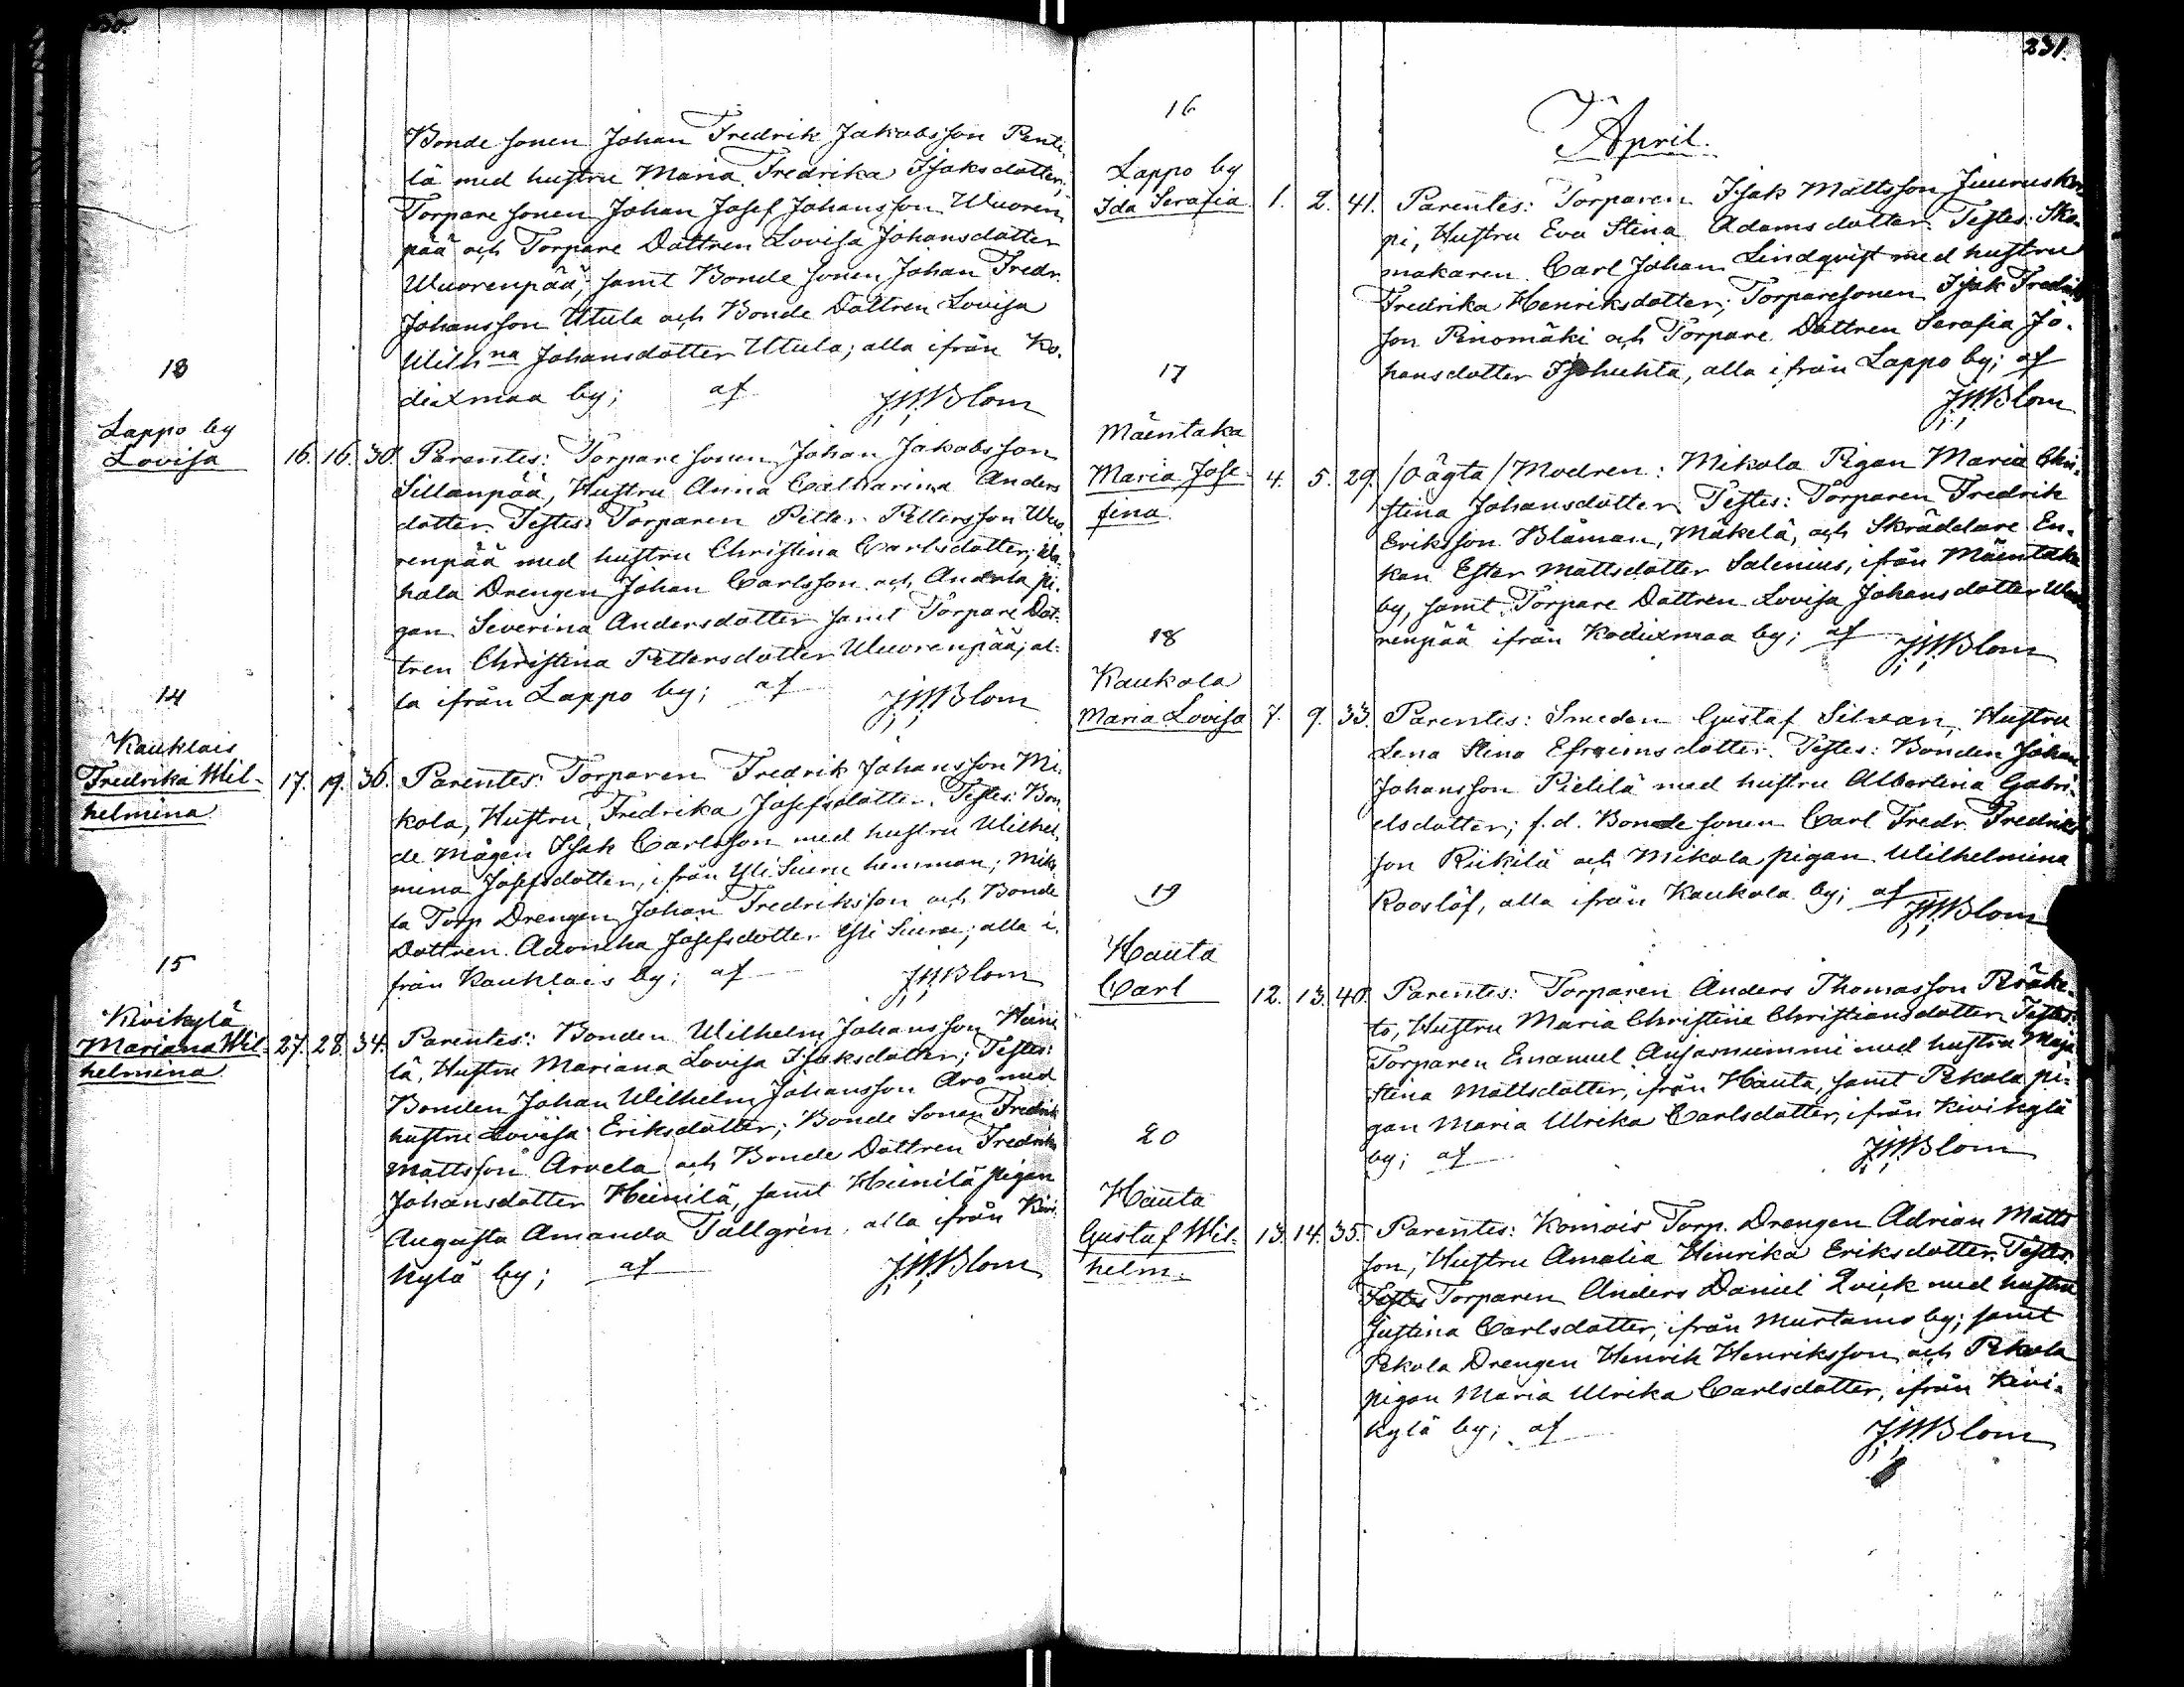 Bonde sonen Johan Fredrik Jakobsson Penti
lä med hustru Maria Fredrika Isaksdotter;
Torpare sonen Johan Josef Johansson Wuoren
pää och Torpare Dottren Lovisa Johansdotter
Wuorenpää; samt Bonde sonen Johan Fredr.
Johansson Utula och Bonde Dottren Lovisa
Wilhna Johansdotter Utula; alla ifrån Ko-
dixmaa by; af JWBlom
13
Lappo by
Lovisa 16. 16. 30. Parentes: Torpare sonen Johan Jakobsson
Sillanpää, Hustru Anna Catharina Anders
dotter. Testes: Torparen Petter Pettersson Wuo
renpää med hustru Christina Carlsdotter;
hola Drengen Johan Carlsson och Andola pi-
gan Severina Andersdotter samt Torpare Dot-
tren Christina Pettersdotter Wuorenpää; al-
la ifrån Lappo by; af JWBlom
14
Kauklais
Fredrika Wil- 17. 19. 36. Parentes: Torparen Fredrik Johansson Mi-
helmina
kola, Hustru Fredrika Josefsdotter. Testes: Bon
de Mågen Isak Carlsson med hustru Wilhel
mina Josefsdotter, ifrån Yli Sueru hemman; Miko
la Torp Drengen Johan Fredriksson och Bonde
Dottren Adolfina Josefsdotter Yli Sueru; alla i-
från Kauklais by; af JWBlom
15
Kivikylä
Mariana Wil- 27. 28. 34. Parentes: Bonden Wilhelm Johansson Heini
helmina
lä, Hustru Mariana Lovisa Isaksdotter; Testes:
Bonden Johan Wilhelm Johansson Aro med
hustru Lovisa Eriksdotter; Bonde Sonen Fredrik
Mattsson Arvela och Bonde Dottren Fredrika
Johansdotter Heinilä, samt Heinilä pigan
Augusta Amanda Tallgrèn, alla ifrån Kivi
kylä by; af JWBlom
231.
April.
16
Lappo by
Ida Serafia 1. 2. 41. Parentes: Torparen Isak Mattsson Juuruskor
pi, Hustru Eva Stina Adamsdotter. Testes: Sko-
makaren Carl Johan Lindqvist med hustru
Fredrika Henriksdotter; Torparesonen Isak Fredriks
son Rinomäki och Torpare Dottren Serafia Jo-
hansdotter Isohuhta, alla ifrån Lappo by; af
JWBlom
17
Mäentaka
Maria Jose- 4. 5. 29. /Oägta/ Modren: Mikola Pigan Maria Chri-
fina
stina Johansdotter. Testes: Torparen Fredrik
Eriksson Blåman, Mäkelä, och Skräddare En-
kan Ester Mattsdotter Salenius, ifrån Mäentaka
by, samt Torpare Dottren Lovisa Johansdotter Wuo
renpää ifrån Kodixmaa by; af JWBlom
18
Kaukola
Maria Lovisa 7. 9. 33. Parentes: Smeden Gustaf Silvan, Hustru
Lena Stina Efraimsdotter. Testes: Bonden Johan
Johansson Pietilä med hustru Albertina Gabri-
elsdotter; f.d. Bonde sonen Carl Fredr. Fredriks
son Riikilä och Mikola pigan Wilhelmina
Rooslöf, alla ifrån Kaukola by; af JWBlom
19
Hauta
Carl 12. 13. 40. Parentes: Torparen Anders Thomasson
to, Hustru Maria Christina Christiansdotter. Testes:
Torparen Emanuel Ansasnummi med hustru Maja
Stina Mattsdotter, ifrån Hauta, samt Pekola pi-
gan Maria Ulrika Carlsdotter, ifrån Kivikylä
by; af JWBlom
20
Hauta
Gustaf Wil- 13. 14. 35. Parentes: Komois Torp. Drengen Adrian Matts
helm.
son, Hustru Amalia Henrika Eriksdotter. Testes:
Testes Torparen Anders Daniel Qvick med hustru
Justina Carlsdotter, ifrån Murtamo by; samt
Pekola Drengen Henrik Henriksson och Pekola
pigan Maria Ulrika Carlsdotter, ifrån Kivi-
kylä by; af JWBlom